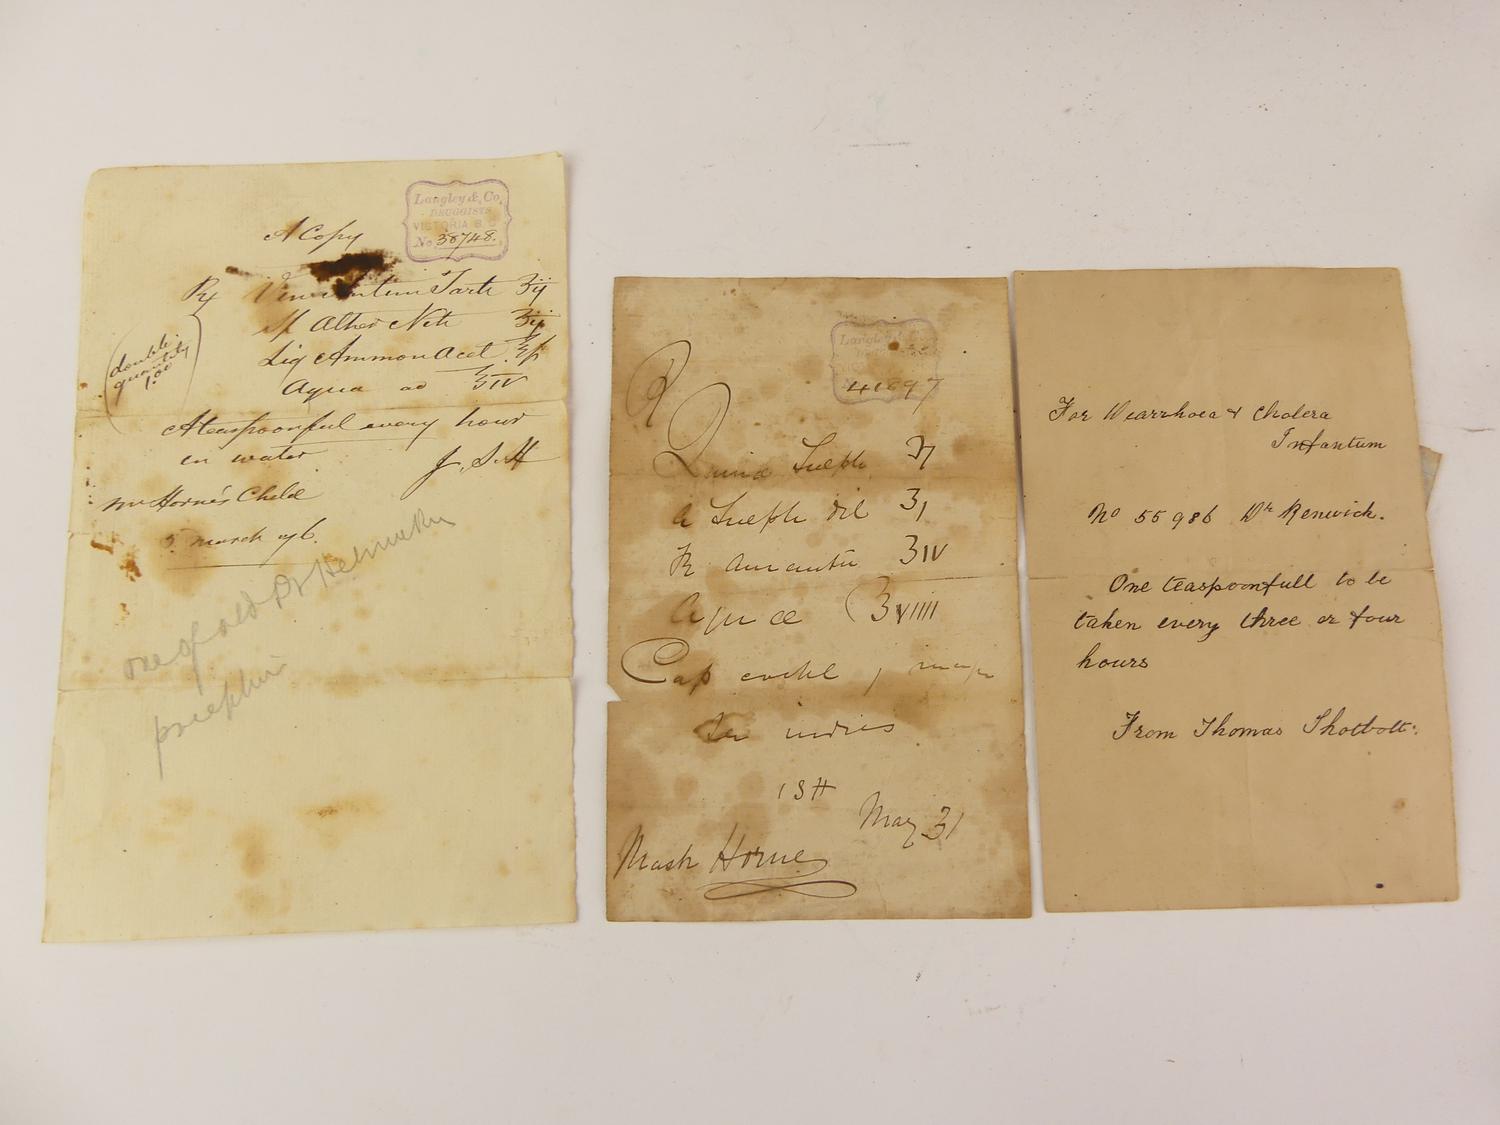 Langley & Co.
DRUGGISTS
VICTORIA B
No. 38748.
A Copy
Rx Tart ʒij
Æther Nit ʒij
Liq Ammon Acet
Aqua ad ℥IV
(double
quantity
1.00
A teaspoonful every hour
in water J. S. H
Mr Horne's Child
5 march 76.
one of old Dr Helmcken
Langley &
41897
R
Quina Sulph
A Sulph dil ʒj
Tr Aurantii ʒIV
Aquae ℥VIIII
Cap cochl j
in dies
ISH
May 31
Horne
For Diarrhoea & Cholera
Infantum
No 55986 Dr Renwick.
One teaspoonfull to be
taken every three or four
hours
From Thomas Shotbolt: